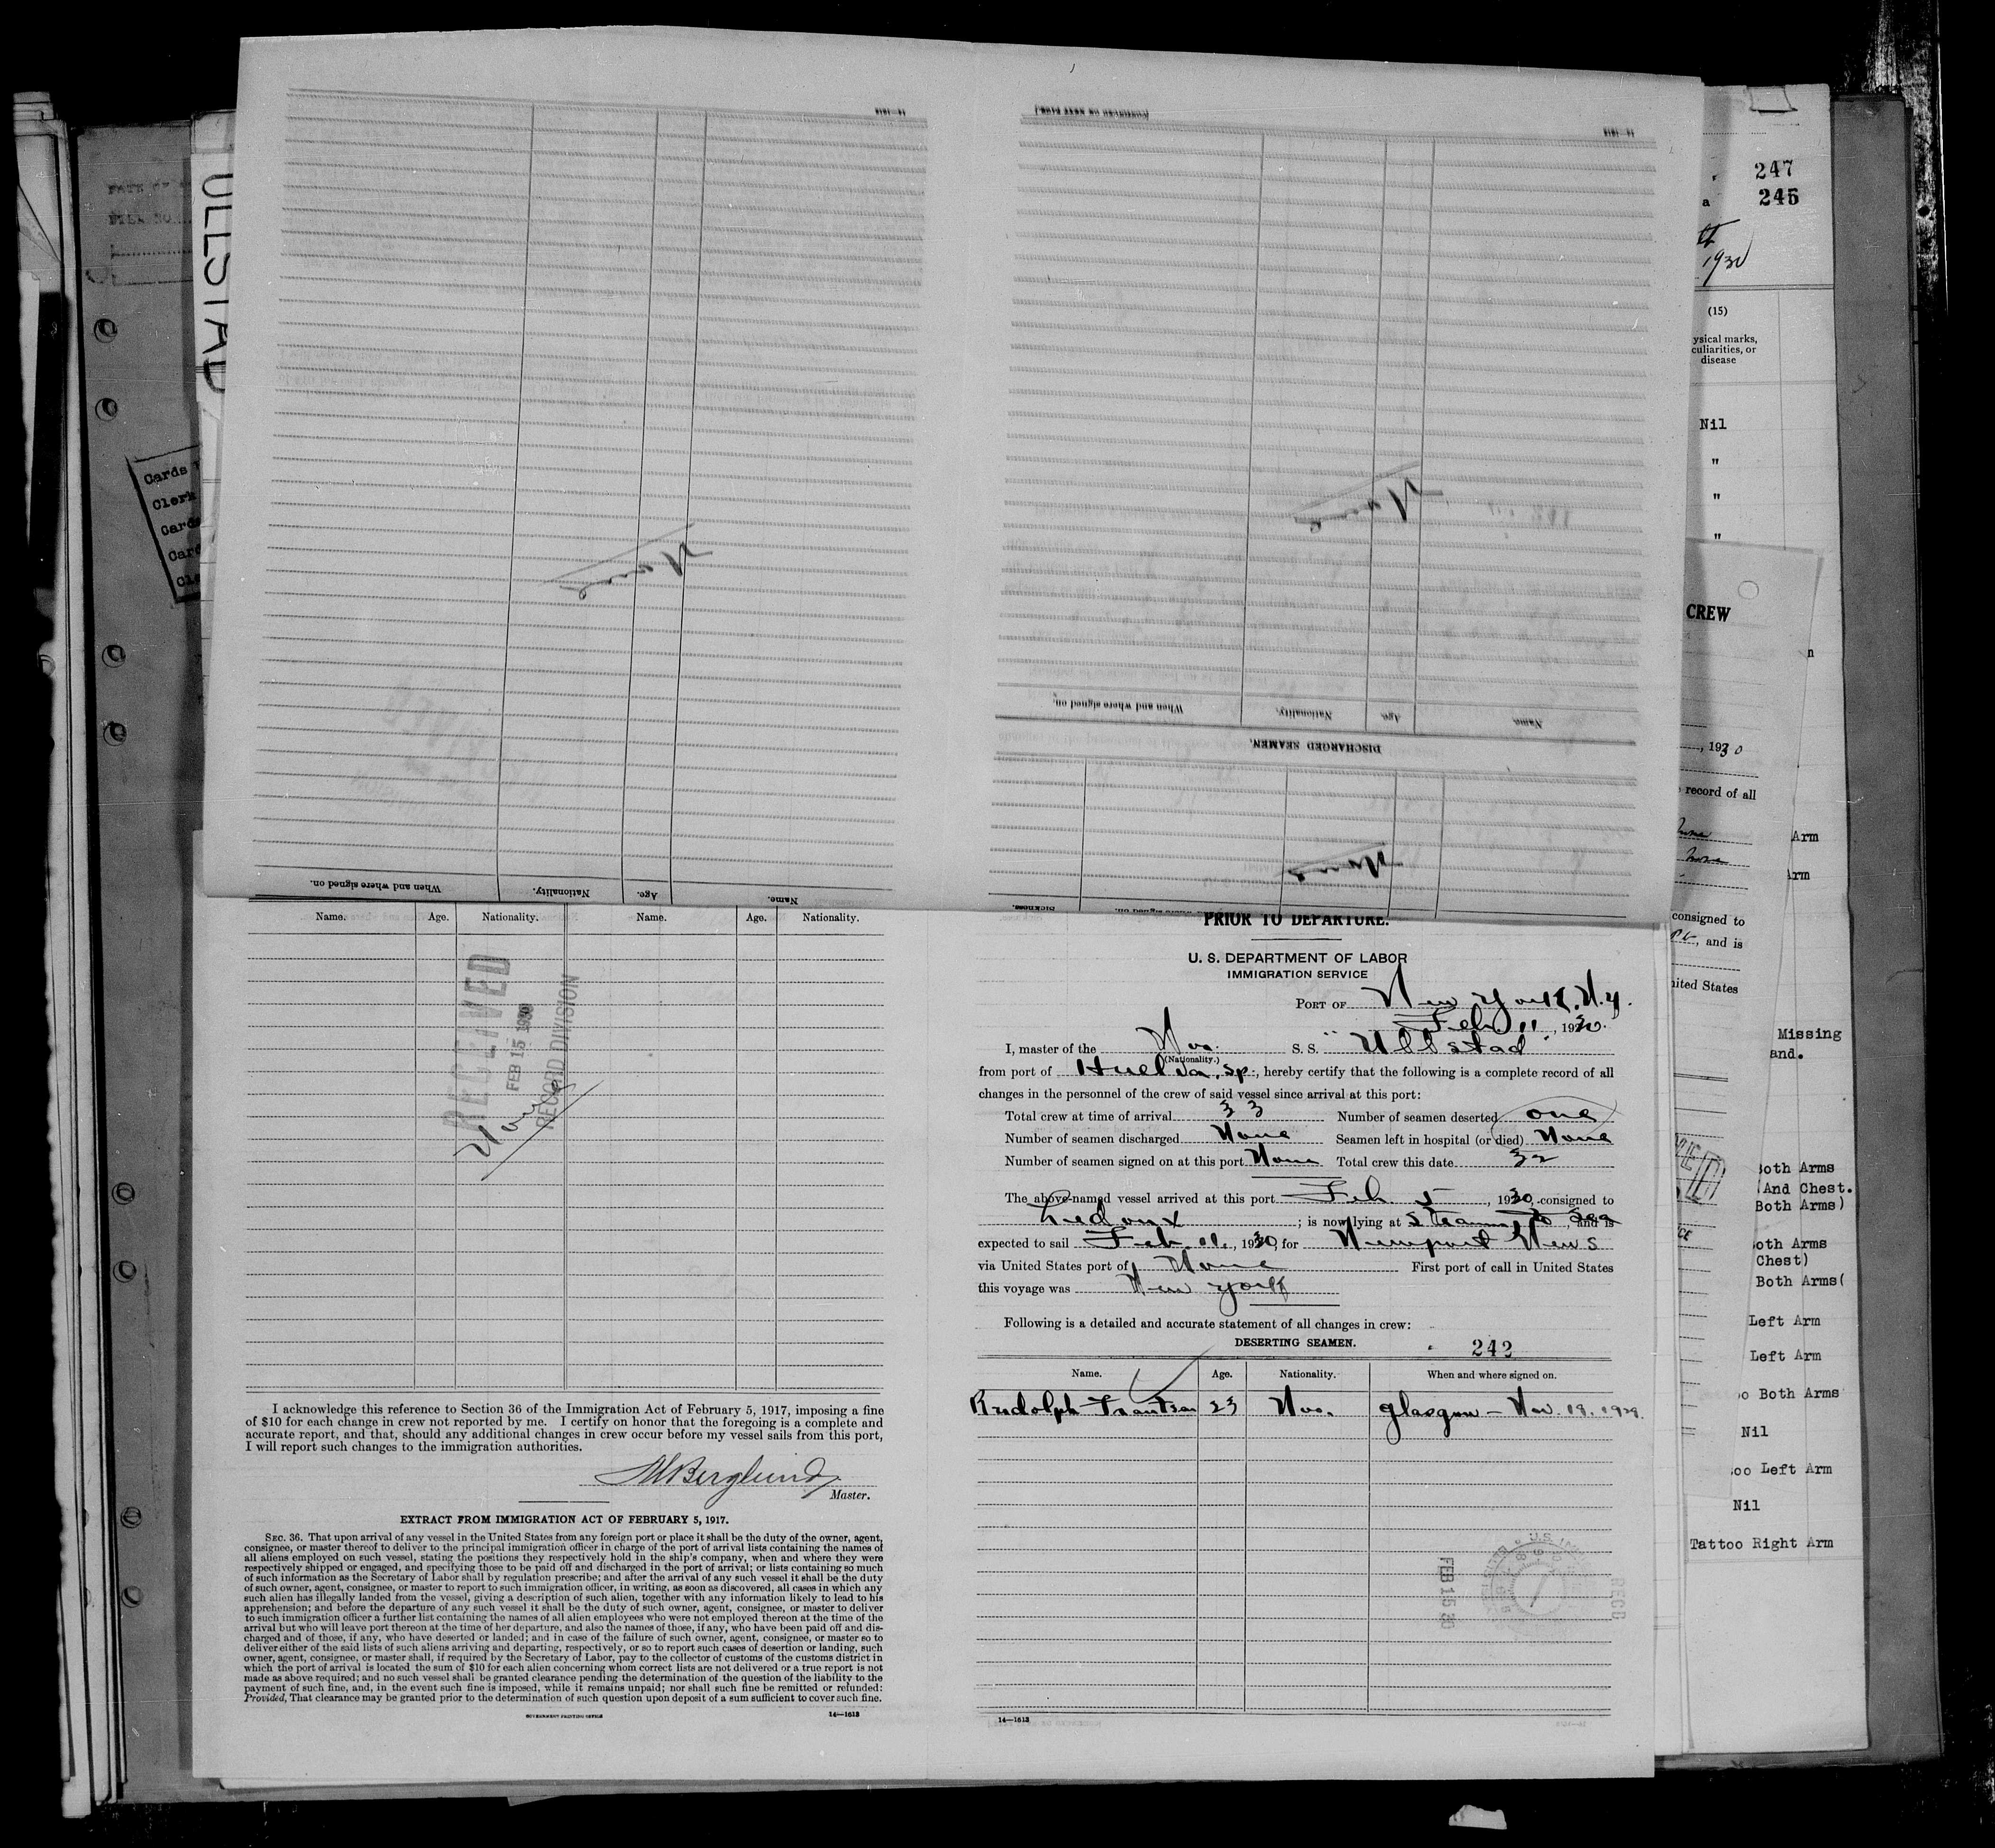 ULLSTAD
14—1613
[CONTINUED ON NEXT PAGE]
14—1613
None
None
When and where signed on.
Nationality.
Age.
Name.
DISCHARGED SEAMEN.
None
When and where signed on.
Nationality.
Age.
Name.
Name.
Age.
Nationality.
Name.
Age.
Nationality.
RECEIVED
FEB 15 1930
RECORD DIVISION
None
I acknowledge this reference to Section 36 of the Immigration Act of February 5, 1917, imposing a fine
of $10 for each change in crew not reported by me. I certify on honor that the foregoing is a complete and
accurate report, and that, should any additional changes in crew occur before my vessel sails from this port,
I will report such changes to the immigration authorities.
Berglund
Master.
EXTRACT FROM IMMIGRATION ACT OF FEBRUARY 5, 1917.
SEC. 36. That upon arrival of any vessel in the United States from any foreign port or place it shall be the duty of the owner, agent,
consignee, or master thereof to deliver to the principal immigration officer in charge of the port of arrival lists containing the names of
all aliens employed on such vessel, stating the positions they respectively hold in the ship's company, when and where they were
respectively shipped or engaged, and specifying those to be paid off and discharged in the port of arrival; or lists containing so much
of such information as the Secretary of Labor shall by regulation prescribe; and after the arrival of any such vessel it shall be the duty
of such owner, agent, consignee, or master to report to such immigration officer, in writing, as soon as discovered, all cases in which any
such alien has illegally landed from the vessel, giving a description of such alien, together with any information likely to lead to his
apprehension; and before the departure of any such vessel it shall be the duty of such owner, agent, consignee, or master to deliver
to such immigration officer a further list containing the names of all alien employees who were not employed thereon at the time of the
arrival but who will leave port thereon at the time of her departure, and also the names of those, if any, who have been paid off and dis-
charged and of those, if any, who have deserted or landed; and in case of the failure of such owner, agent, consignee, or master so to
deliver either of the said lists of such aliens arriving and departing, respectively, or so to report such cases of desertion or landing, such
owner, agent, consignee, or master shall, if required by the Secretary of Labor, pay to the collector of customs of the customs district in
which the port of arrival is located the sum of $10 for each alien concerning whom correct lists are not delivered or a true report is not
made as above required; and no such vessel shall be granted clearance pending the determination of the question of the liability to the
payment of such fine, and, in the event such fine is imposed, while it remains unpaid; nor shall such fine be remitted or refunded:
Provided, That clearance may be granted prior to the determination of such question upon deposit of a sum sufficient to cover such fine.
GOVERNMENT PRINTING OFFICE
14—1613
PRIOR TO DEPARTURE.
U. S. DEPARTMENT OF LABOR
IMMIGRATION SERVICE
PORT OF New York, N.Y.
Feb. 11, 1930.
I, master of the Nor. S. S. "Ullstad"
(Nationality.)
from port of Huelva, Sp., hereby certify that the following is a complete record of all
changes in the personnel of the crew of said vessel since arrival at this port:
Total crew at time of arrival 33 Number of seamen deserted one
Number of seamen discharged None Seamen left in hospital (or died) None
Number of seamen signed on at this port None Total crew this date 32
The above-named vessel arrived at this port Feb 5, 1930, consigned to
Ledoux; is now lying at Steaming to Sea, and is
expected to sail Feb. 11, 1930, for Newport News
via United States port of None First port of call in United States
this voyage was New York
Following is a detailed and accurate statement of all changes in crew:
DESERTING SEAMEN. 242
Name. Age. Nationality. When and where signed on.
Rudolph Frantzen 23 Nor. Glasgow — Nov. 19. 1929.
FEB 15 30
REC'D
14—1613
247
245
1930
(15)
ysical marks,
culiarities, or
disease
Nil
"
"
"
CREW
, 1930
record of all
none
Arm
none
Arm
consigned to
, and is
nited States
Missing
and.
Both Arms
(And Chest.
Both Arms)
oth Arms
Chest)
Both Arms(
Left Arm
Left Arm
oo Both Arms
Nil
oo Left Arm
Nil
Tattoo Right Arm
Cards
Clerk
Cards
Card